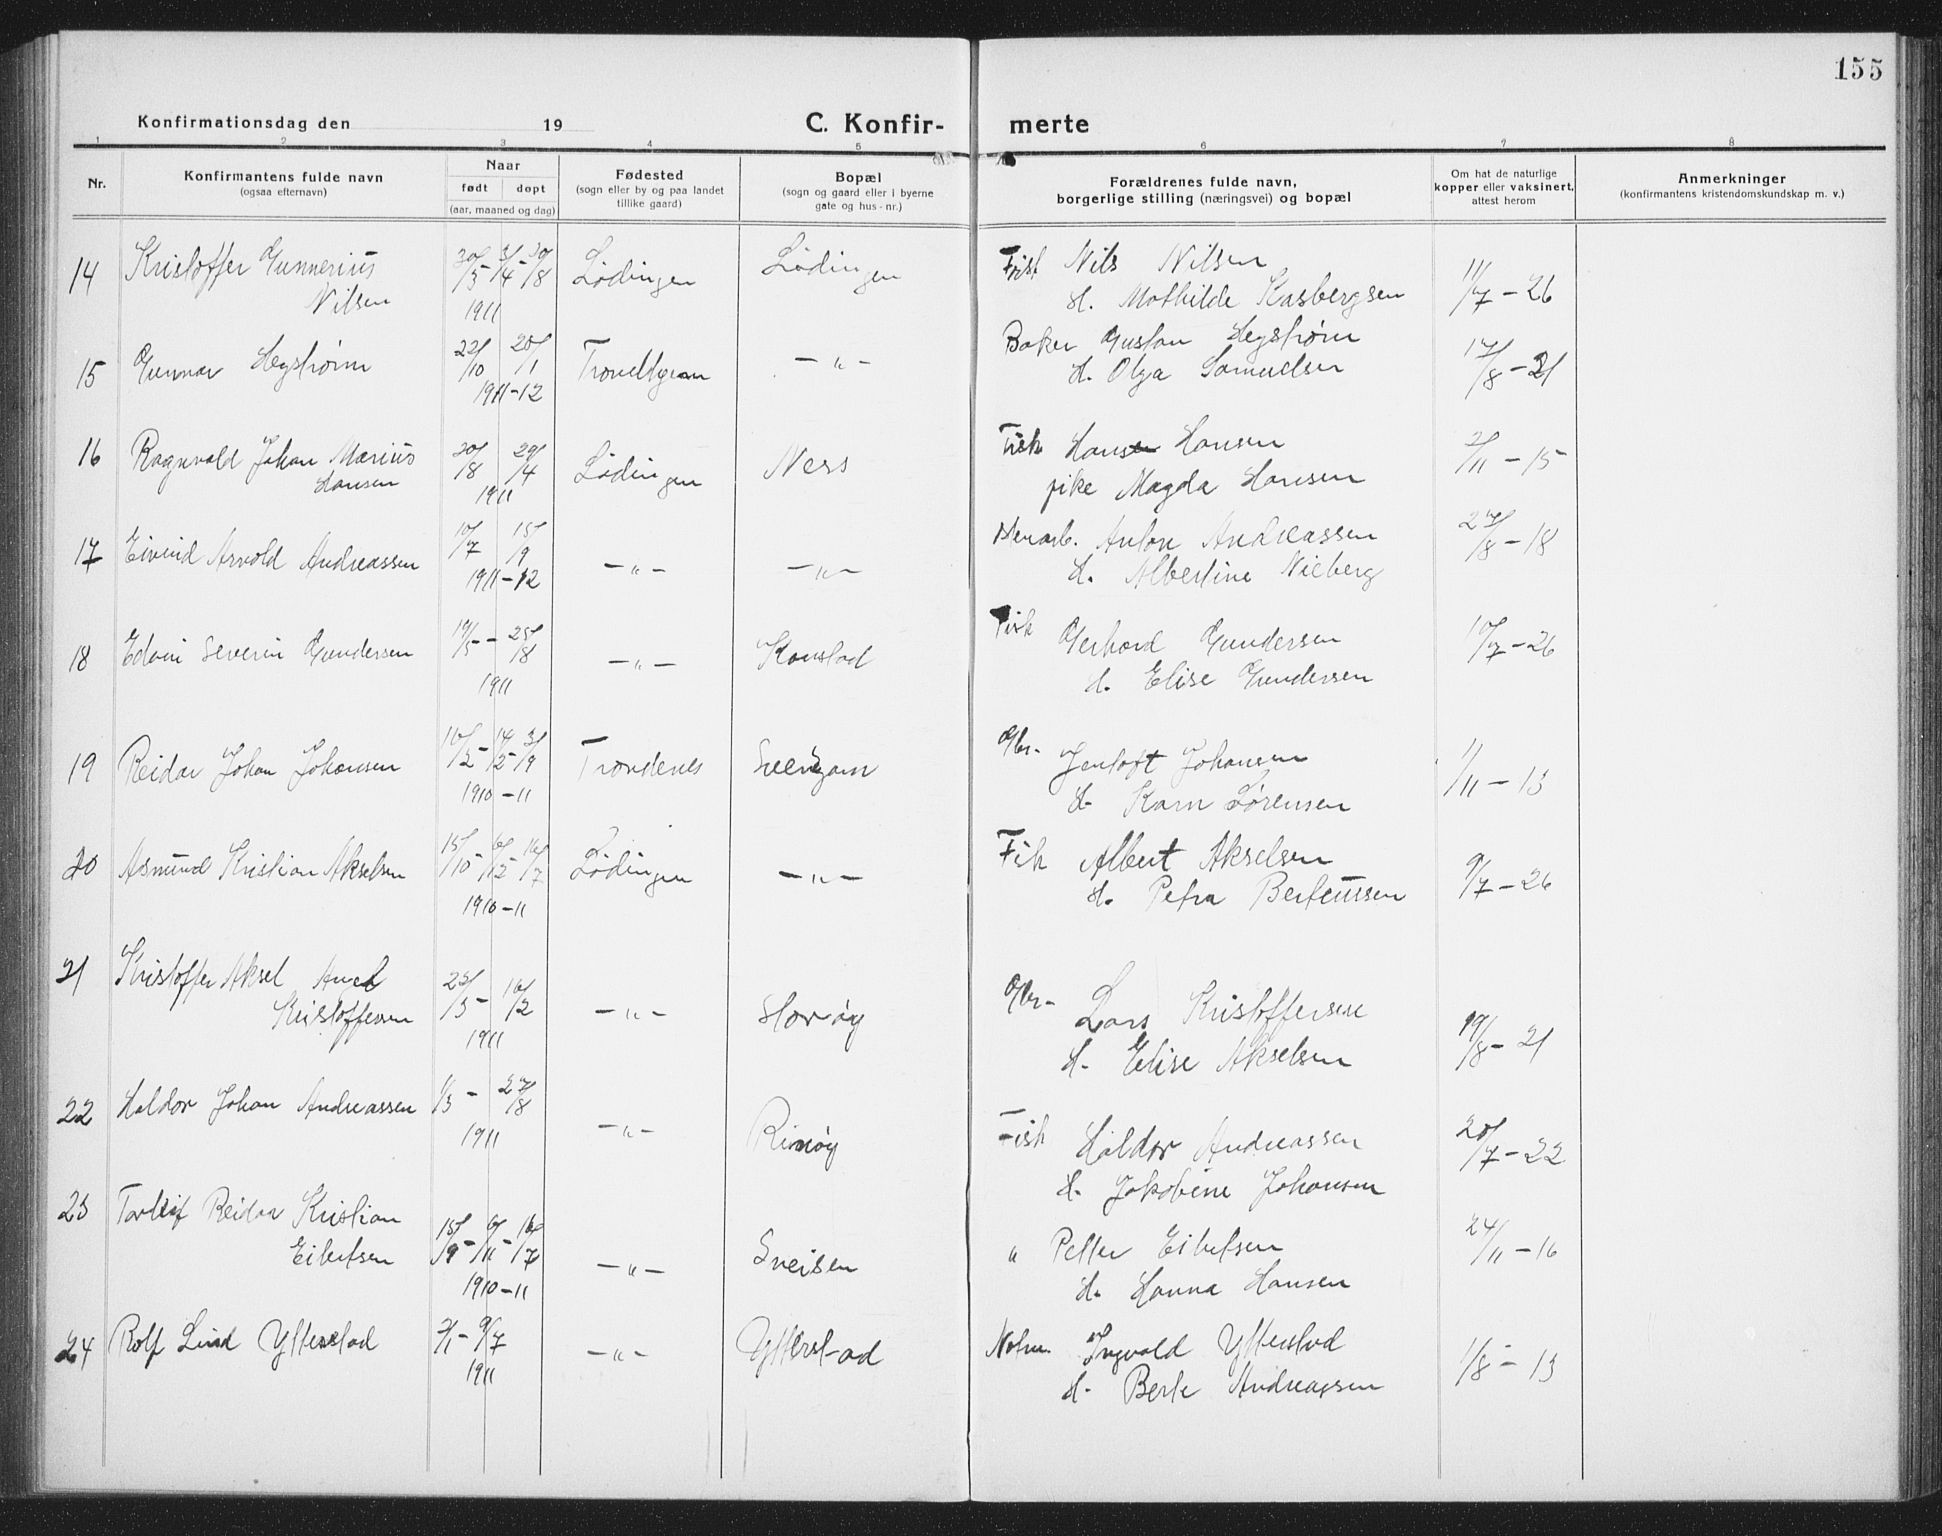 155
Konfirmationsdag den 19
C. Konfir-
merte
1 2 3 4 5 6 7 8
Nr.
Konfirmantens fulde navn
(ogsaa efternavn)
Naar
født døpt
(aar, maaned og dag)
Fødested
(sogn eller by og paa landet
tillike gaard)
Bopæl
(sogn og gaard eller i byerne
gate og hus-nr.)
Forældrenes fulde navn,
borgerlige stilling (næringsvei) og bopæl
Om hat de naturlige
kopper eller vaksinert,
attest herom
Anmerkninger
(konfirmantens kristendomskundskap m. v.)
14 Kristoffer Gunnerius 30/3 - 20/8 Lødingen Lødingen Fisk Nils Nilsen 11/7 - 26
Nilsen 1911 H. Mathilde Kasbergsen
15 Gunnar Hegstrøm 22/10 20/1 - " - Baker Gustav Hegstrøm 17/8 - 21
1911-12 H. Olga Samuelsen
16 Ragnvald Johan Marius 20/8 29/4 Lødingen Ness Fisk Hans Hansen 2/11 - 15
Hansen 1911 pike Magda Hansen
17 Eivind Arvold Andreassen 10/7 15/9 - " - - " - Anton Andreassen 27/8 - 18
1911-12 H. Albertine Nieberg
18 Edvin Severin Gundersen 19/5 - 25/8 - " - Kanstad Fisk Gerhard Gundersen 10/7 - 26
1911 H. Elise Gundersen
19 Reidar Johan Johansen 16/12 - 3/9 Trondenes Gbr. Jentoft Johansen 1/11 - 13
1910-11 H. Karn Sørensen
20 Asmund Kristian Akselsen 15/10 - 6/12 - 16/7 Lødingen - " - Fisk Albert Akselsen 9/7 - 26
1910-11 H. Petra Berteussen
21 Kristoffer Aksel 16/2 - " - Storøy Gbr. Lars Kristoffersen 19/8 - 21
Kristoffersen 1911 H. Elise Akselsen
22 Haldor Johan Andreassen 1/3 - 27/8 - " - Rinøy Fisk Haldor Andreassen 20/7 - 22
1911 H. Jakobine Johansen
23 Torleif Reidar Kristian 15/9 - 6/11 - 16/7 - " - Sneisen " Petter Eibertsen 24/11 - 16
Eibertsen 1910-11 H. Hanna Hansen
24 Rolf Lind Ytterstad 2/1 - 9/7 - " - Ytterstad Ingvald Ytterstad 1/8 - 13
1911 H. Berte Andreassen